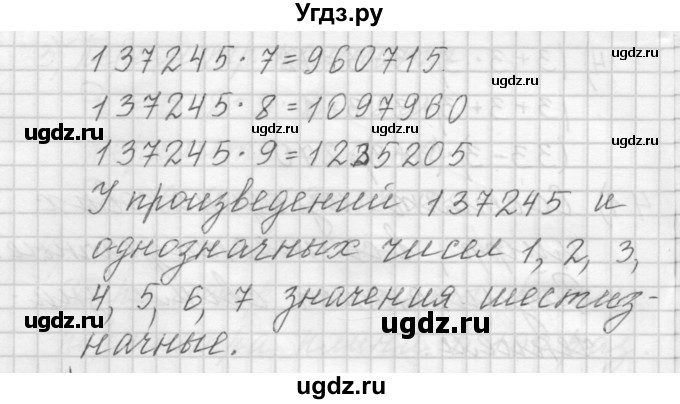 Угдз.ру
137245·7=960715
ugdz.ru
ugdz.ru
137245·8=1097960
ugdz.ru
ugdz.ru
ugdz.ru
ugdz.ru
137245·9=1235205
У произведений 137245 и
ugdz.ru
однозначных чисел 1, 2, 3,
4, 5, 6, 7 значения шестиз-
ugdz.ru
ugdz.ru
начные.
ugdz.ru
ugdz.ru